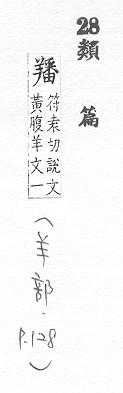 28類篇
羳 符袁切說文
黃腹羊文一
(羊部.
P.128)